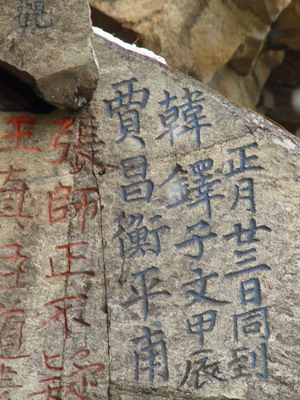 觀
王
張師正不疑
賈昌衡平甫
韓鐸子文甲辰
正月廿三日同到